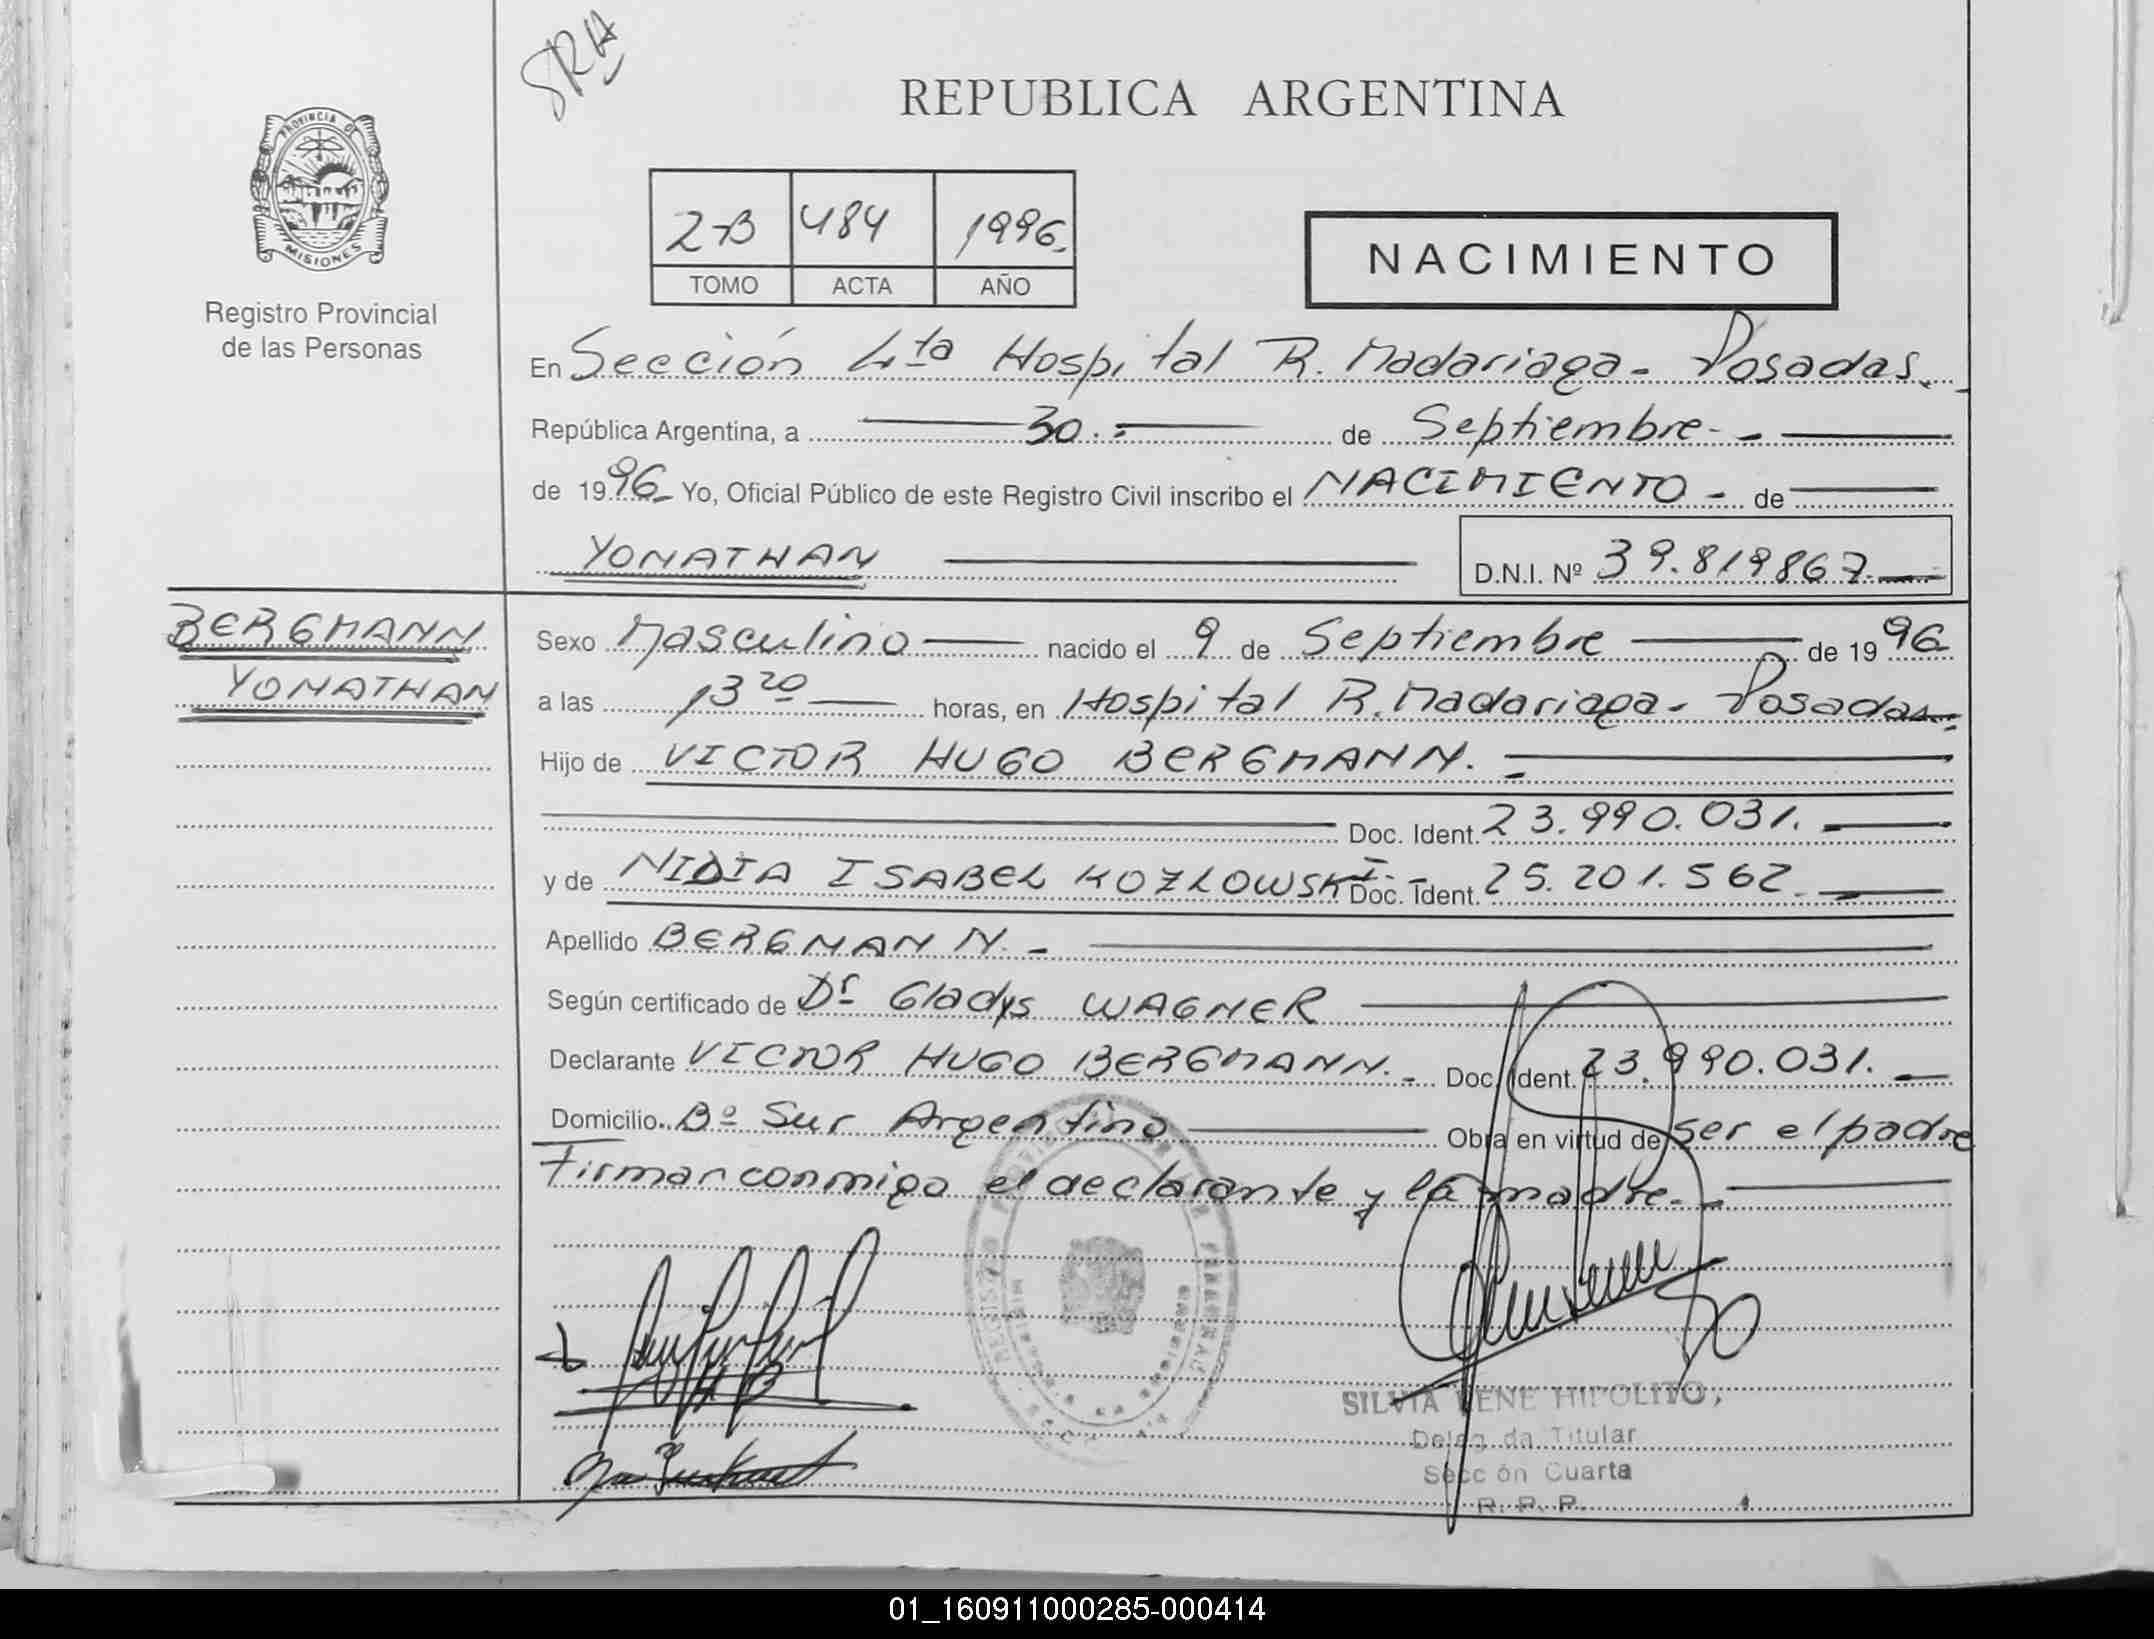 SRH
REPUBLICA ARGENTINA
PROVINCIA DE
MISIONES
Registro Provincial
de las Personas
2-B 484 1996.
TOMO ACTA AÑO
NACIMIENTO
En Sección 4ta Hospital R. Madariaga - Posadas.
República Argentina, a 30.- de Septiembre.-
de 1996- Yo, Oficial Público de este Registro Civil inscribo el NACIMIENTO - de
YONATHAN
D.N.I. Nº 39.819867.
BERGMANN
YONATHAN
Sexo Masculino nacido el 9 de Septiembre de 1996
a las 13 20 horas, en Hospital R. Madariaga - Posadas.-
Hijo de VICTOR HUGO BERGMANN. -
Doc. Ident. 23.990.031. -
y de NIDIA ISABEL KOZLOWSKI. - Doc. Ident. 25.201.562. -
Apellido BERGMANN. -
Según certificado de Dr Gladys WAGNER
Declarante VICTOR HUGO BERGMANN. - Doc. Ident. 23.990.031. -
Domicilio Bº Sur Argentino Obra en virtud de ser el padre
Firman conmigo el declarante y la madre. -
SILVIA RENE HIPOLITO,
Delegada Titular
Sección Cuarta
R. P. P.
01_160911000285-000414